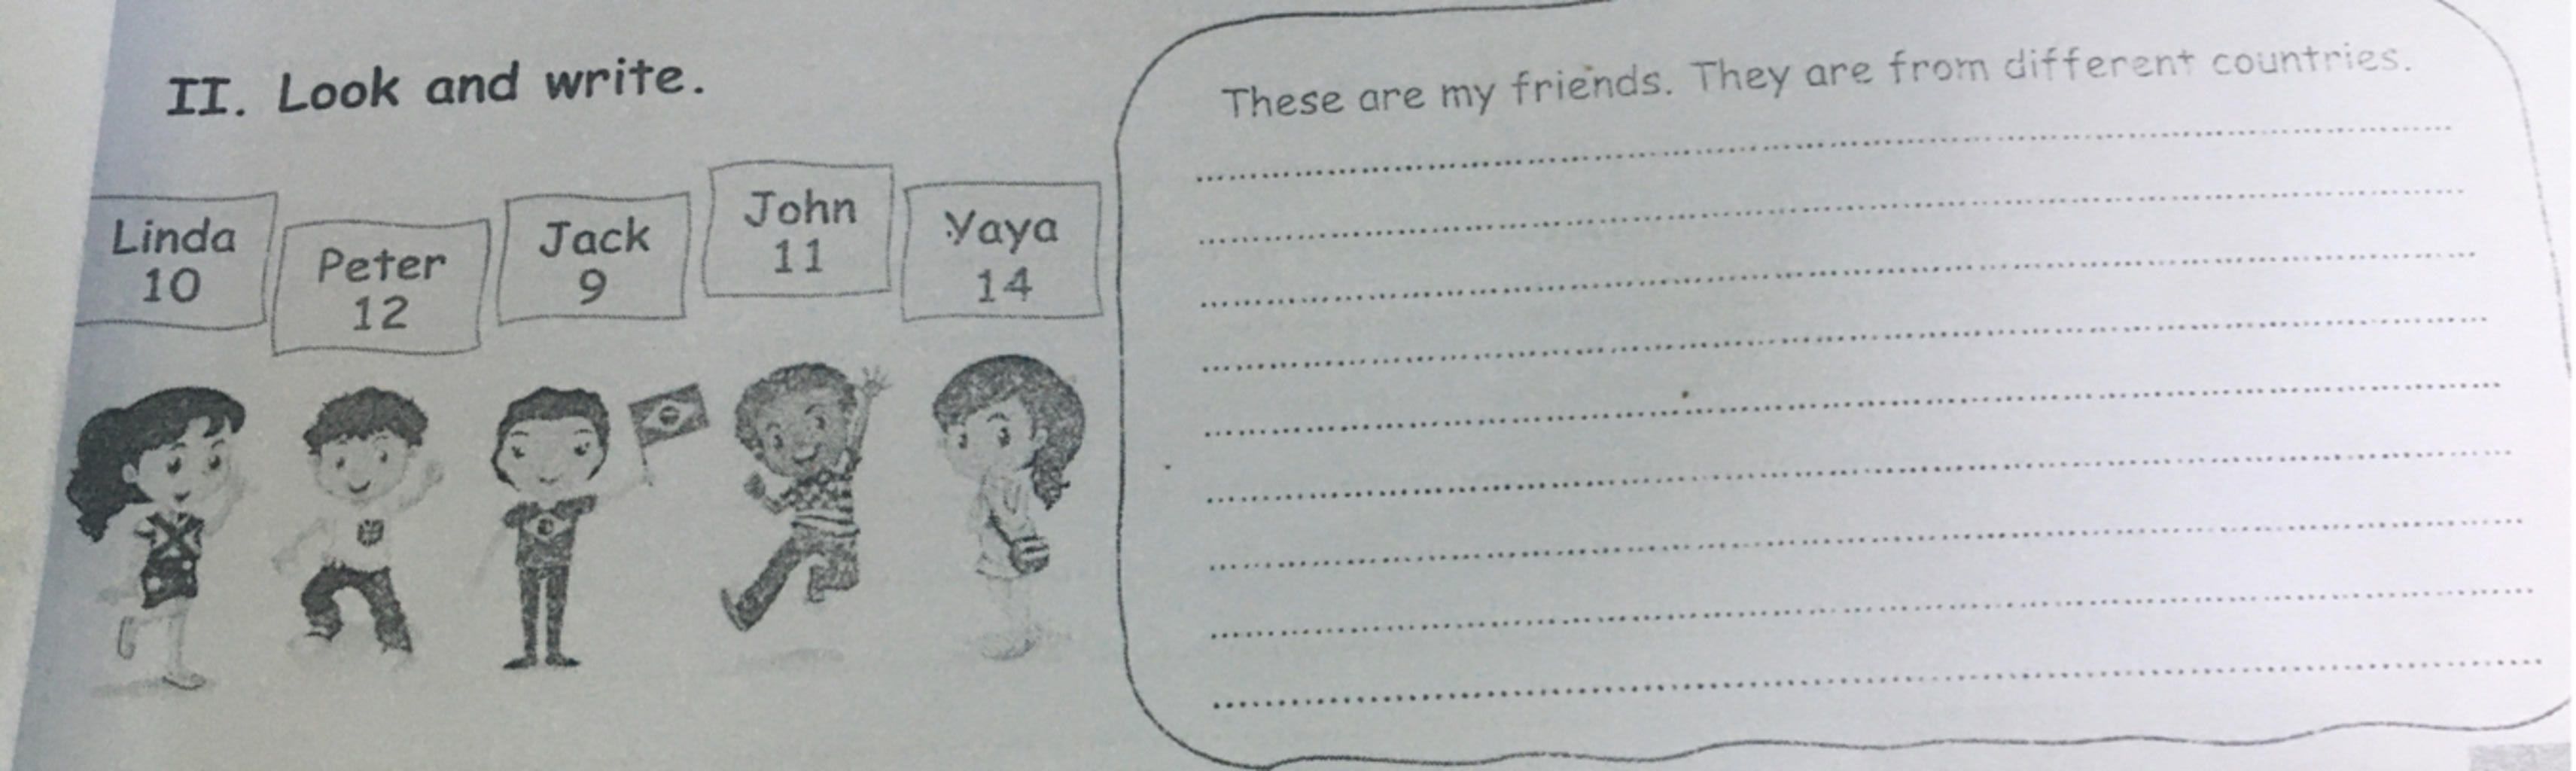 II. Look and write.
Linda
10
Peter
12
Jack
9
John
11
Yaya
14
These are my friends. They are from different countries.